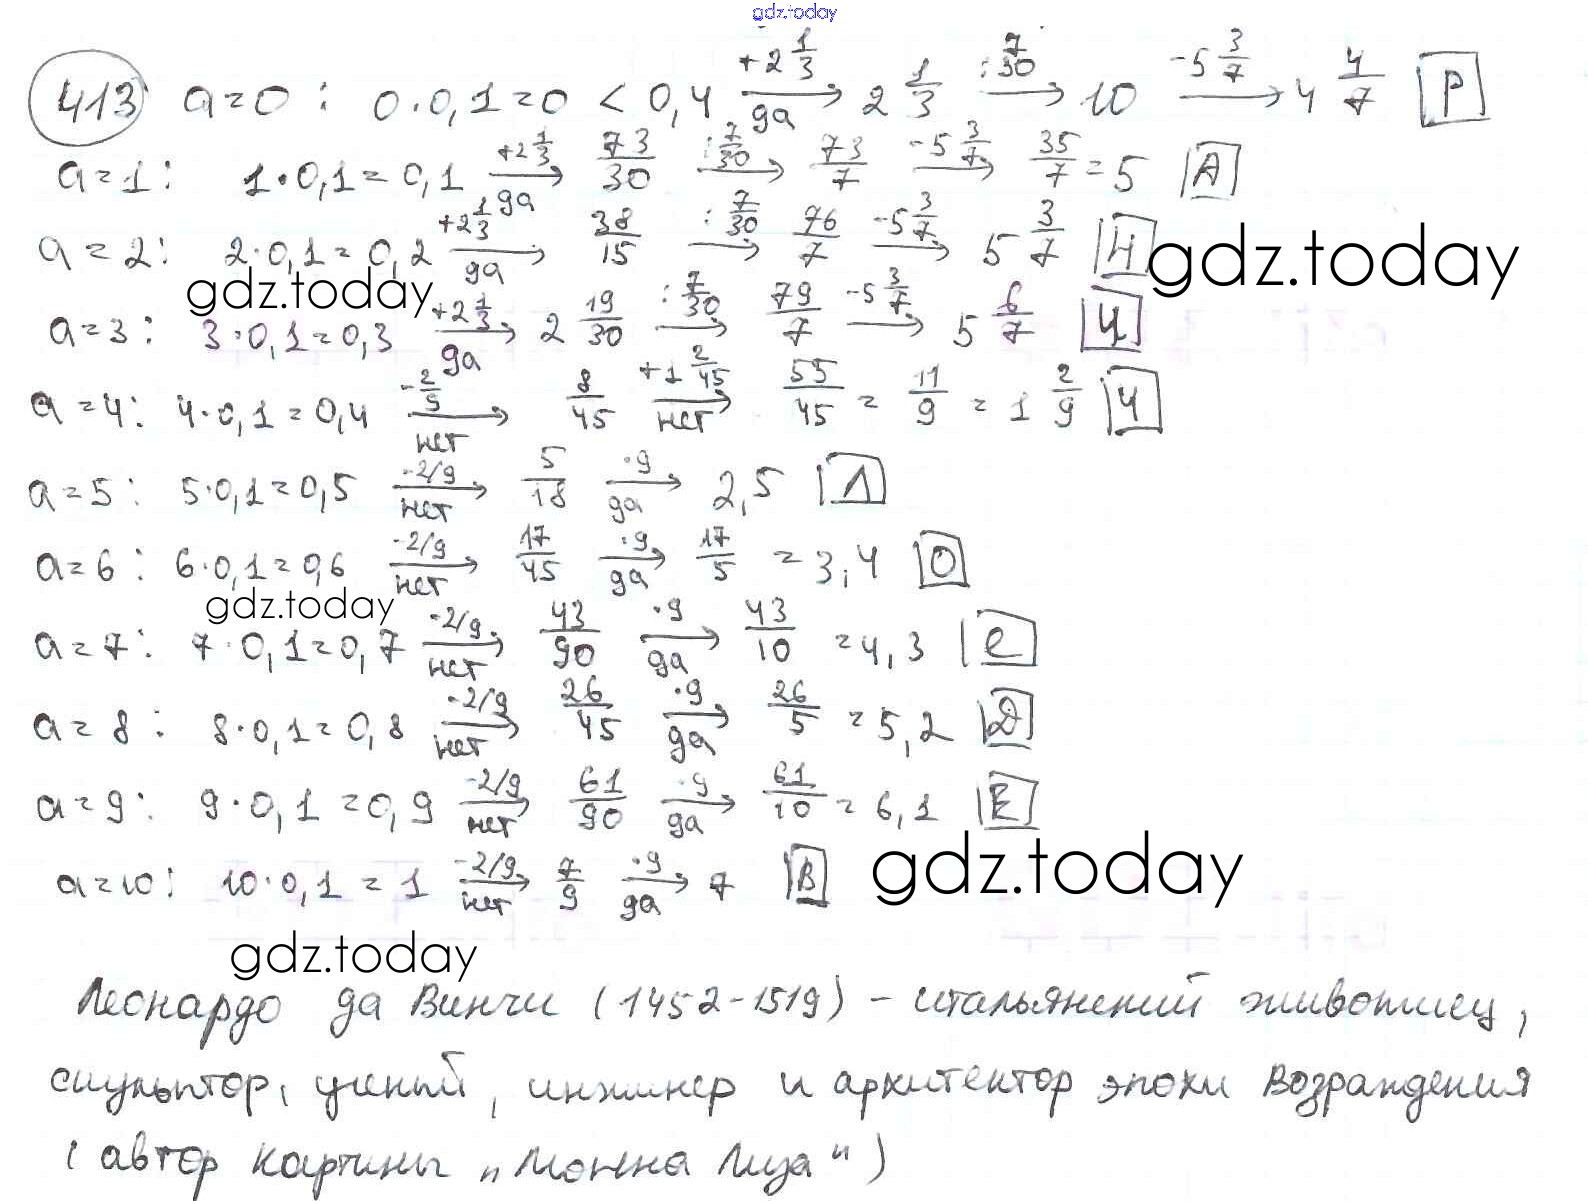 gdz.today
413 a=0 : 0·0,1=0 < 0,4 +2 1/3 да → 2 1/3 :7/30 → 10 -5 3/7 → 4 4/7 Р
a=1: 1·0,1=0,1 +2 1/3 да → 73/30 :7/30 → 73/7 -5 3/7 → 35/7 = 5 А
a=2: 2·0,1=0,2 +2 1/3 да → 38/15 :7/30 → 76/7 -5 3/7 → 5 3/7 Н
gdz.today
gdz.today
a=3: 3·0,1=0,3 +2 1/3 да → 2 19/30 :7/30 → 79/7 -5 3/7 → 5 6/7 И
a=4: 4·0,1=0,4 -2/5 нет → 8/45 +1 2/45 нет → 55/45 = 11/9 = 1 2/9 Ч
a=5: 5·0,1=0,5 -2/9 нет → 5/18 ·9 да → 2,5 Л
a=6: 6·0,1=0,6 -2/9 нет → 17/45 ·9 да → 17/5 = 3,4 О
gdz.today
a=7: 7·0,1=0,7 -2/9 нет → 43/90 ·9 да → 43/10 =4,3 С
a=8: 8·0,1=0,8 -2/9 нет → 26/45 ·9 да → 26/5 = 5,2 Д
a=9: 9·0,1=0,9 -2/9 нет → 61/90 ·9 да → 61/10 = 6,1 Е
a=10: 10·0,1=1 -2/9 нет → 7/9 ·9 да → 7 В
gdz.today
gdz.today
Леонардо да Винчи (1452-1519) - итальянский живописец,
скульптор, ученый, инжинер и архитектор эпохи Возраждения
(автор картины „Монна Лиза")